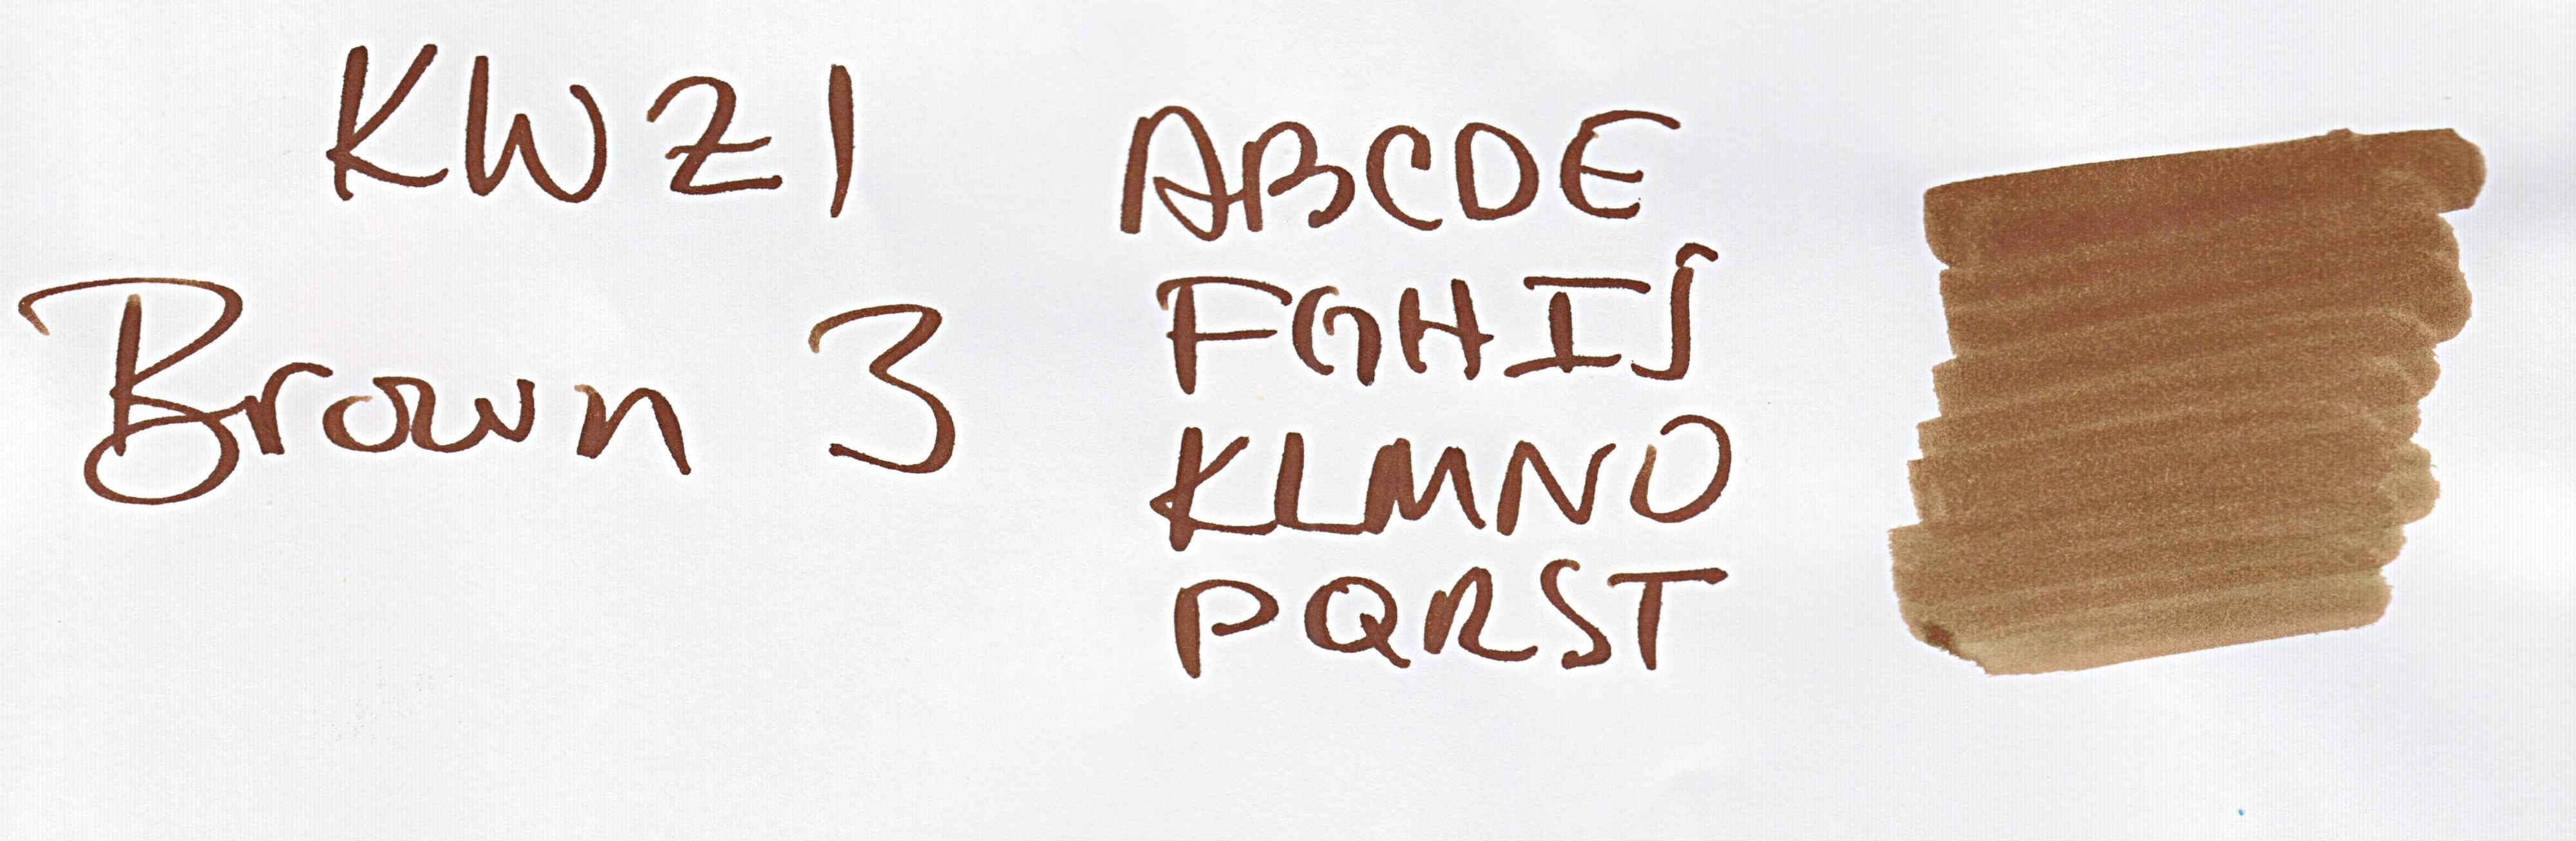 KWZI
Brown 3
ABCDE
FGHIJ
KLMNO
PQRST